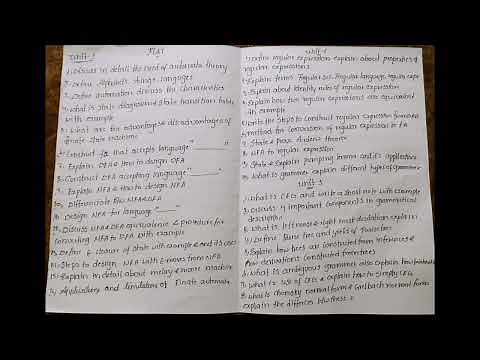 Unit-1 FLAT
1. Discuss in detail the need of automata theory
2. Define Alphabets, strings, languages
3. Define automation discuss the characteristics
4. What is state diagram and state transition table
with example
5. What are the advantage & disadvantages of
finite state machine
6. Construct FA that accepts language " "
7. Explain DFA & How to design DFA
8. Construct DFA accepting language " "
9. Explain NFA & How to design NFA
10. Differentiate b/w NFA & DFA
11. Design NFA for language " "
12. Discuss NFA & DFA equivalence & procedure for
converting NFA to DFA with example
13. Define closure of state with example and its uses
14. Steps to design NFA with ε moves from NFA
15. Explain in detail about melay & moore machine
16. Applications and limitation of Finate automata
Unit-2
1. Define regular expression explain about properties of
regular expressions
2. Explain terms Regular set, Regular language, regular expre
3. Explain about identity rules of regular expression
4. Explain how two regular expressions are equivalent
with example
5. Write the steps to construct regular expression from
method for conversion of regular expression to FA
6. State & prove Arden's theorem
NFA to regular expression
State & Explain pumping lemma and its applications
What is grammer explain different types of grammer
Unit-3
1. What is CFG and write a short note with example
2. Discuss 4 important components in grammatical
description
3. What is leftmost & right most derivation explain
4. Define Parse tree and yields of parse tree
5. Explain how trees are constructed from inferences &
how derivations constructed from trees
6. What is ambigious grammer also explain how
7. What is use of CFG & explain how to simply CFG
8. What is chomsky normal form & Greibach normal form
explain the diffences b/w these 2